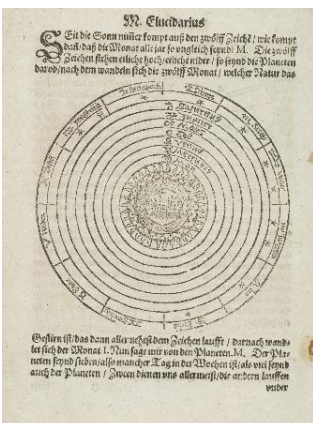 M. Elucidarius
SEit die Sonn nun̄er kompt auß den zwölff Zeichē / wie kompt
daß / daß die Monat alle jar so vngleich seynd: M. Die zwölff
Zeichen stehen etliche hoch / etliche nider / so seynd die Planeten
darob / nach dem wandeln sich die zwölff Monat / welcher Natur das
Saturnus
Jupiter
Mars
Venus
Mercurius
Gestirn ist / das dann aller nehest dem Zeichen laufft / darnach wand-
let sich der Monat. J. Nun sage mir von den Planeten. M. Der Pla-
neten seynd sieben / also mancher Tag in der Wochen ist / als viel seynd
auch der Planeten / Zween dienen vns allermeist / die andern lauffen
vnder